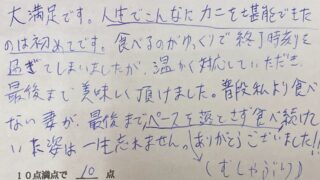 大満足です。人生でこんなにカニを堪能できた
のは初めてです。食べるのがゆっくりで終了時刻を
過ぎてしまいましたが、温かく対応していただき、
最後まで美味しく頂けました。普段私より食べ
ない妻が、最後までペースを落とさず食べ続けて
いた姿は一生忘れません。ありがとうございました!!
(むしゃぶり)
10点満点で 10 点